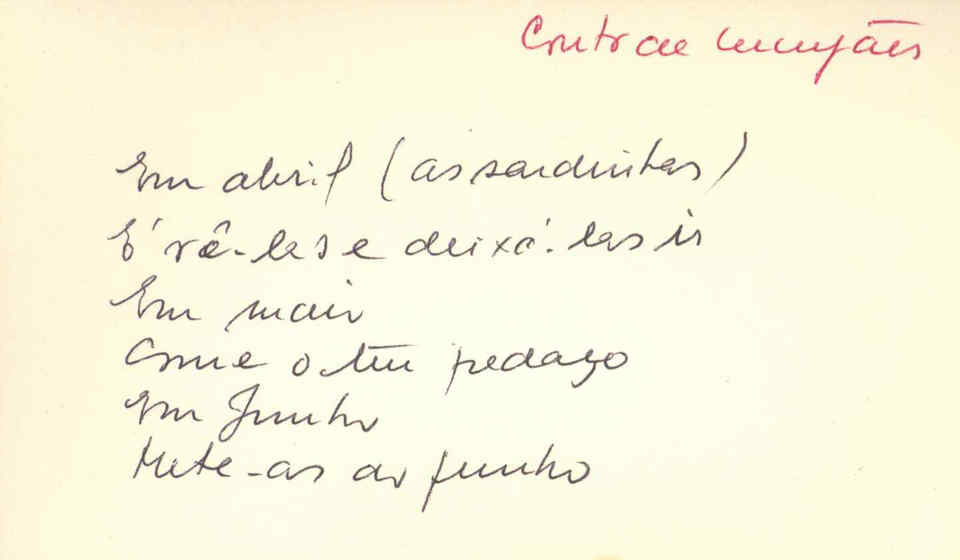 Conto de Cunhães
Em abril (as sardinhas)
É vê-las e deixá-las ir
Em maio
Come o teu pedaço
Em Junho
Mete-as ao funho